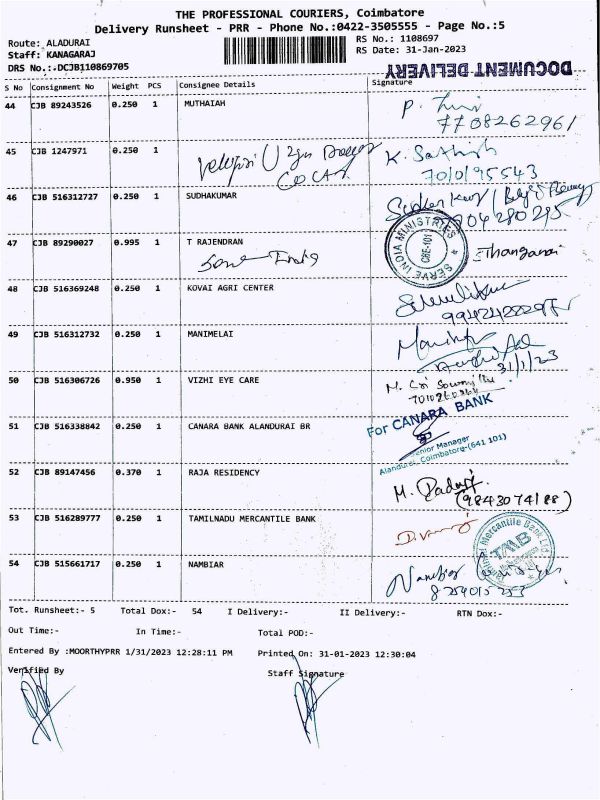 THE PROFESSIONAL COURIERS, Coimbatore
Delivery Runsheet - PRR - Phone No.:0422-3505555 - Page No.:5
Route: ALADURAI
RS No.: 1108697
Staff: KANAGARAJ
RS Date: 31-Jan-2023
DRS No.:.DCJB110869705
DOCUMENT DELIVERY
S No Consignment No Weight PCS Consignee Details Signature
44 CJB 89243526 0.250 1 MUTHAIAH
7708262961
45 CJB 1247971 0.250 1 K. Sathish
7010195543
46 CJB 516312727 0.250 1 SUDHAKUMAR
47 CJB 89290027 0.995 1 T RAJENDRAN Thangaraj
SERVE INDIA MINISTRIES
CBE-101
48 CJB 516369248 0.250 1 KOVAI AGRI CENTER
49 CJB 516312732 0.250 1 MANIMELAI
31/1/23
50 CJB 516306726 0.950 1 VIZHI EYE CARE
51 CJB 516338842 0.250 1 CANARA BANK ALANDURAI BR
For CANARA BANK
Senior Manager
Alandurai, Coimbatore-(641 101)
52 CJB 89147456 0.370 1 RAJA RESIDENCY
(9843074188)
53 CJB 516289777 0.250 1 TAMILNADU MERCANTILE BANK
Mercantile Bank Ltd
TMB
54 CJB 515661717 0.250 1 NAMBIAR Nambiar
Tot. Runsheet:- 5 Total Dox:- 54 I Delivery:- II Delivery:- RTN Dox:-
Out Time:- In Time:- Total POD:-
Entered By :MOORTHYPRR 1/31/2023 12:28:11 PM Printed On: 31-01-2023 12:30:04
Verified By Staff Signature